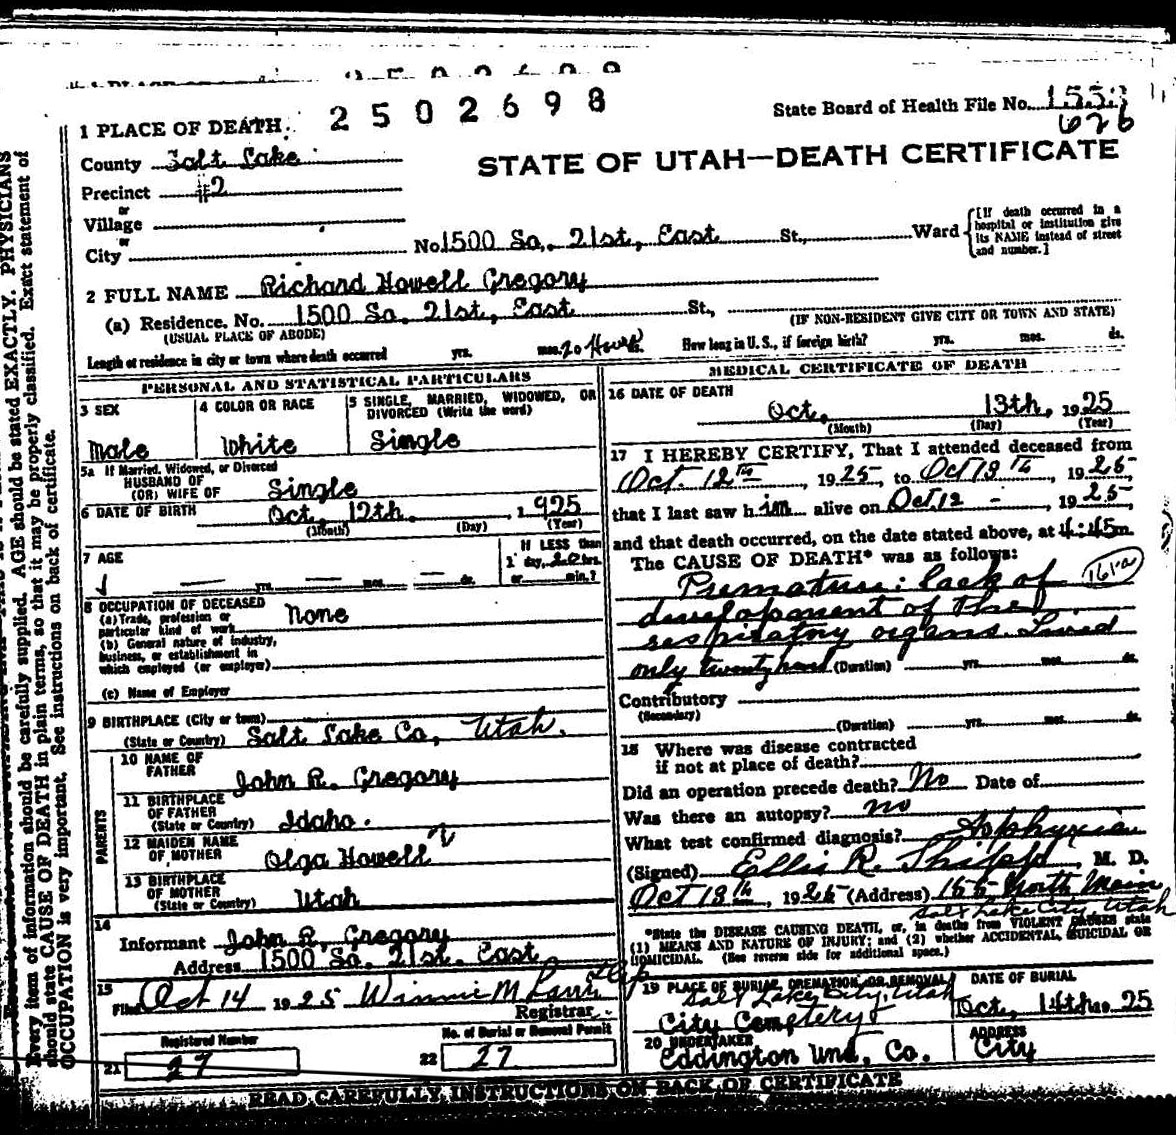 2502698
State Board of Health File No. 1553
626
1 PLACE OF DEATH
County Salt Lake
STATE OF UTAH—DEATH CERTIFICATE
Precinct #2
or
Village
or
City No. 1500 So. 21st, East St., Ward
[If death occurred in a hospital or institution give its NAME instead of street and number.]
2 FULL NAME Richard Howell Gregory
(a) Residence. No. 1500 So. 21st, East St.,
(USUAL PLACE OF ABODE) (IF NON-RESIDENT GIVE CITY OR TOWN AND STATE)
Length of residence in city or town where death occurred yrs. mos. 20 Hours How long in U. S., if foreign birth? yrs. mos. ds.
PERSONAL AND STATISTICAL PARTICULARS
3 SEX
Male
4 COLOR OR RACE
White
5 SINGLE, MARRIED, WIDOWED, OR DIVORCED (Write the word)
Single
5a If Married, Widowed, or Divorced
HUSBAND OF
(OR) WIFE OF Single
6 DATE OF BIRTH Oct. 12th. 1925
(Month) (Day) (Year)
7 AGE
yrs. mos. ds.
If LESS than
1 day, 20 hrs.
or min.?
8 OCCUPATION OF DECEASED
(a) Trade, profession or
particular kind of work None
(b) General nature of industry,
business, or establishment in
which employed (or employer)
(c) Name of Employer
9 BIRTHPLACE (City or town)
(State or Country) Salt Lake Co, Utah.
PARENTS
10 NAME OF
FATHER John R. Gregory
11 BIRTHPLACE
OF FATHER
(State or Country) Idaho.
12 MAIDEN NAME
OF MOTHER Olga Howell
13 BIRTHPLACE
OF MOTHER
(State or Country) Utah
14
Informant John R. Gregory
Address 1500 So. 21st. East
15
Filed Oct 14 1925 Winnie M
Registrar
Registered Number
21 27
No. of Burial or Removal Permit
22 27
MEDICAL CERTIFICATE OF DEATH
16 DATE OF DEATH
Oct. 13th, 1925
(Month) (Day) (Year)
17 I HEREBY CERTIFY, That I attended deceased from
Oct. 12th, 1925 to Oct 13th, 1925
that I last saw him alive on Oct 12 - , 1925
and that death occurred, on the date stated above, at 4:45 m.
The CAUSE OF DEATH* was as follows:
Premature: lack of 161-a
development of the
respiratory organs. Lived
only twenty hours (Duration) yrs. mos. ds.
Contributory
(Secondary)
(Duration) yrs. mos. ds.
18 Where was disease contracted
if not at place of death?
Did an operation precede death? No Date of
Was there an autopsy? no
What test confirmed diagnosis? Asphyxia
(Signed) Ellis R. Shipp, M. D.
Oct 13th, 1925 (Address) 155 North Main
Salt Lake City, Utah
*State the DISEASE CAUSING DEATH, or, in deaths from VIOLENT CAUSES state
(1) MEANS AND NATURE OF INJURY; and (2) whether ACCIDENTAL, SUICIDAL OR
HOMICIDAL. (See reverse side for additional space.)
19 PLACE OF BURIAL, CREMATION, OR REMOVAL
Salt Lake City, Utah
City Cemetery
DATE OF BURIAL
Oct. 14th 1925
20 UNDERTAKER
Eddington Und. Co.
ADDRESS
City
READ CAREFULLY INSTRUCTIONS ON BACK OF CERTIFICATE
Every item of information should be carefully supplied. AGE should be stated EXACTLY. PHYSICIANS
should state CAUSE OF DEATH in plain terms, so that it may be properly classified. Exact statement of
OCCUPATION is very important. See instructions on back of certificate.